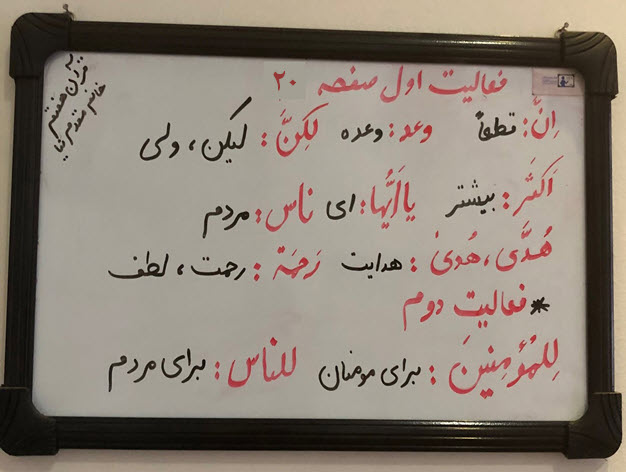 قرآن هفتم
خانم مقدمی نیا
فعالیت اول صفحه ۲۰
اِنَّ: قطعاً وعد: وعده لٰکِنَّ: لیکن، ولی
اَکثَر: بیشتر یا اَیُّهَا: ای ناس: مردم
هُدًی، هُدیٰ: هدایت رَحمَة: رحمت، لطف
* فعالیت دوم
لِلمُؤمِنینَ: برای مومنان للناس: برای مردم